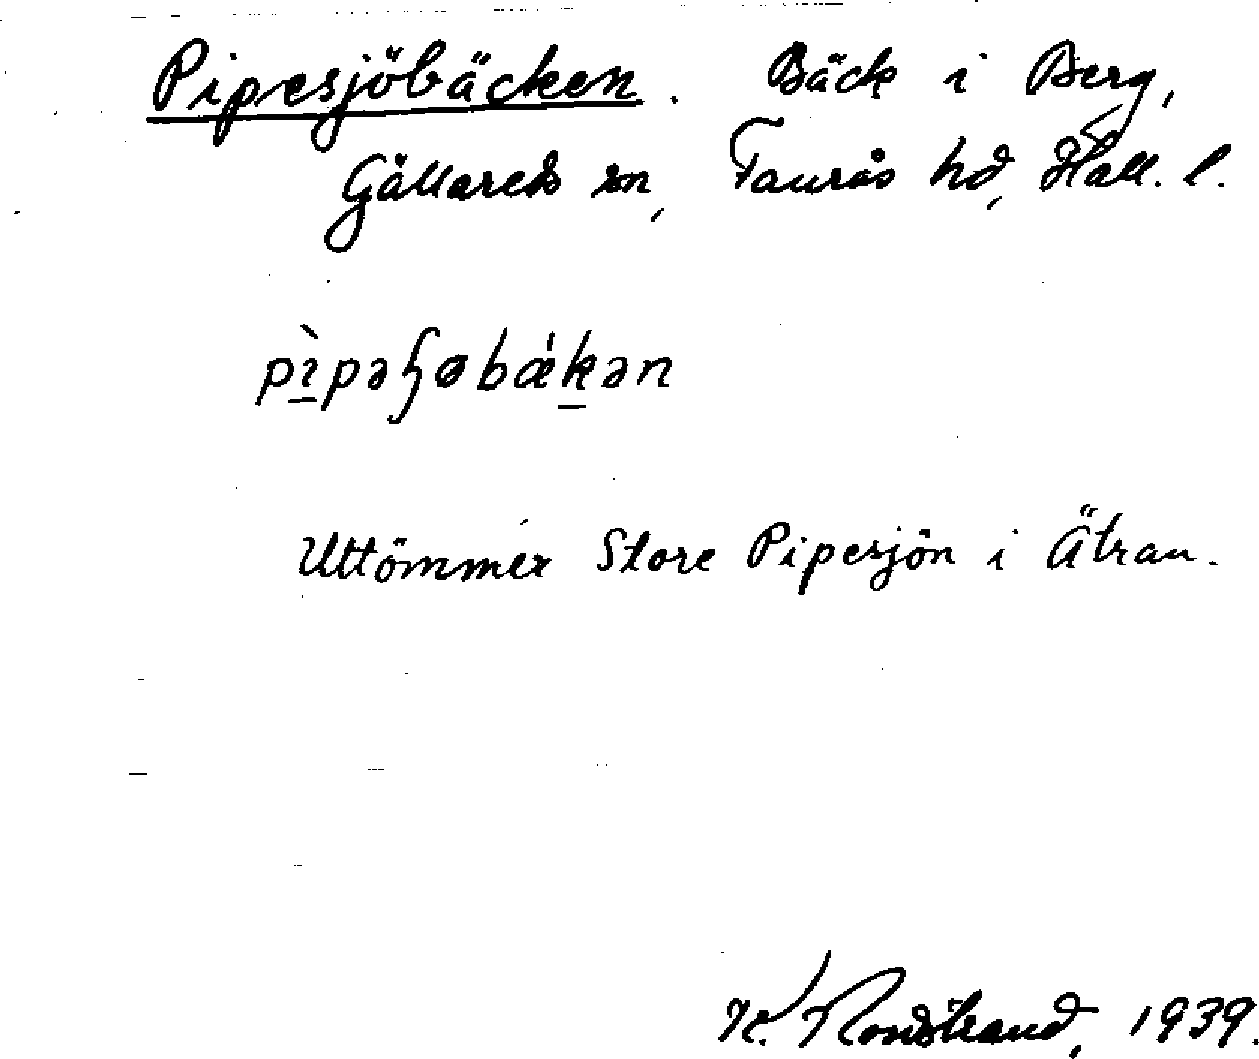 Pipesjöbäcken. Bäck i Berg,
Gällareds sn, Faurås hd, Hall. l.
pìpəɧøbǽkən
Uttömmer Store Pipesjön i Ätran.
K. Nordstrand, 1939.